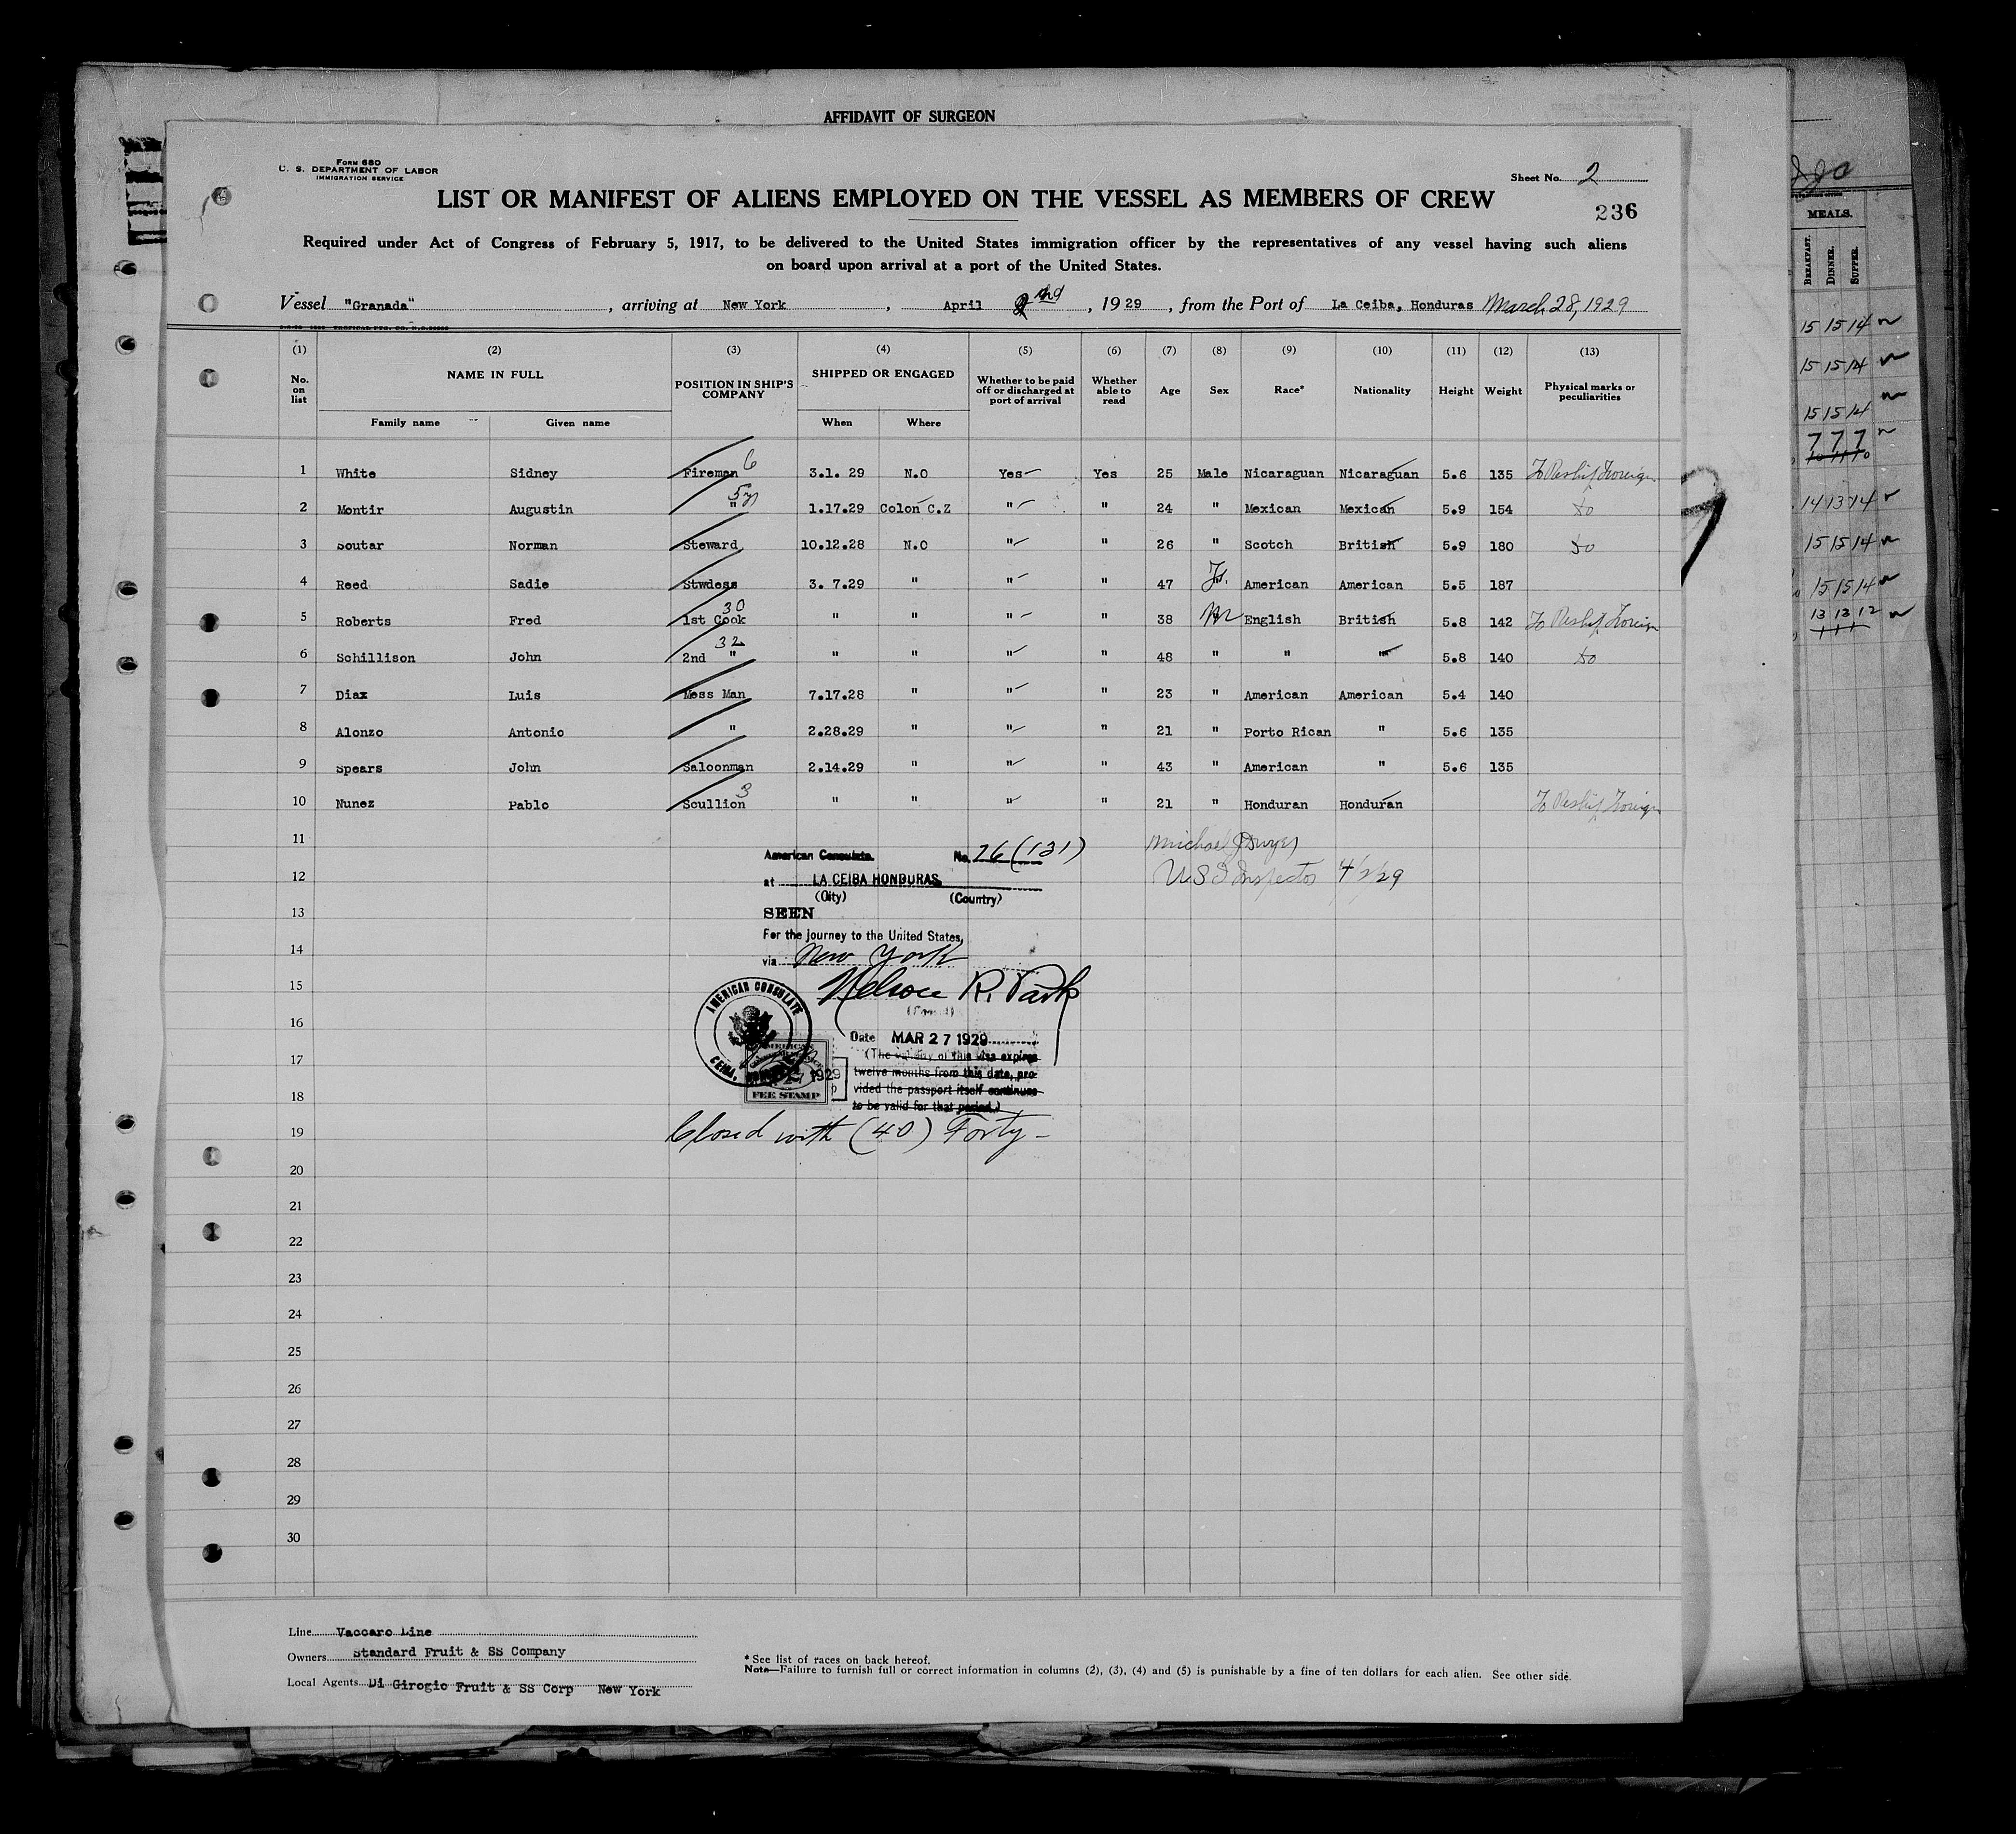 AFFIDAVIT OF SURGEON
FORM 680
U. S. DEPARTMENT OF LABOR
IMMIGRATION SERVICE
Sheet No. 2
LIST OR MANIFEST OF ALIENS EMPLOYED ON THE VESSEL AS MEMBERS OF CREW
236
Required under Act of Congress of February 5, 1917, to be delivered to the United States immigration officer by the representatives of any vessel having such aliens
on board upon arrival at a port of the United States.
Vessel "Granada", arriving at New York, April 2nd, 1929, from the Port of La Ceiba, Honduras March 28, 1929
(1) (2) (3) (4) (5) (6) (7) (8) (9) (10) (11) (12) (13)
No. on list NAME IN FULL POSITION IN SHIP'S COMPANY SHIPPED OR ENGAGED Whether to be paid off or discharged at port of arrival Whether able to read Age Sex Race* Nationality Height Weight Physical marks or peculiarities
Family name Given name When Where
1 White Sidney Fireman 6 3.1. 29 N.O Yes Yes 25 Male Nicaraguan Nicaraguan 5.6 135 To Reship Foreign
2 Montir Augustin " 5 1.17.29 Colon C.Z " " 24 " Mexican Mexican 5.9 154 do
3 Soutar Norman Steward 10.12.28 N.O " " 26 " Scotch British 5.9 180 do
4 Reed Sadie Stwdess 3. 7.29 " " " 47 American American 5.5 187
5 Roberts Fred 1st Cook 30 " " " " 38 M English British 5.8 142 To Reship Foreign
6 Schillison John 2nd " 32 " " " " 48 " " " 5.8 140 do
7 Diax Luis Mess Man 7.17.28 " " " 23 " American American 5.4 140
8 Alonzo Antonio " 2.28.29 " " " 21 " Porto Rican " 5.6 135
9 Spears John Saloonman 2.14.29 " " " 43 " American " 5.6 135
10 Nunez Pablo Scullion 3 " " " " 21 " Honduran Honduran To Reship Foreign
11
12
13
14
15
16
17
18
19
20
21
22
23
24
25
26
27
28
29
30
American Consulate. No. 26 (131)
at LA CEIBA HONDURAS.
(City) (Country)
SEEN
For the journey to the United States,
via New York
Nelson R. Park
Date MAR 27 1929
(The validity of this visa expires
twelve months from this date, pro-
vided the passport itself continues
to be valid for that period.)
AMERICAN CONSULATE
CEIBA,
1929
FEE STAMP
Closed with (40) Forty -
Michael J Dwyer
U S I Inspector 4/2/29
Line Vaccaro Line
Owners Standard Fruit & SS Company
Local Agents Di Girogio Fruit & SS Corp New York
* See list of races on back hereof.
Note—Failure to furnish full or correct information in columns (2), (3), (4) and (5) is punishable by a fine of ten dollars for each alien. See other side.
MEALS.
BREAKFAST. DINNER. SUPPER.
15 15 14
15 15 14
15 15 14
7 7 7
14 13 14
15 15 14
15 15 14
13 13 12